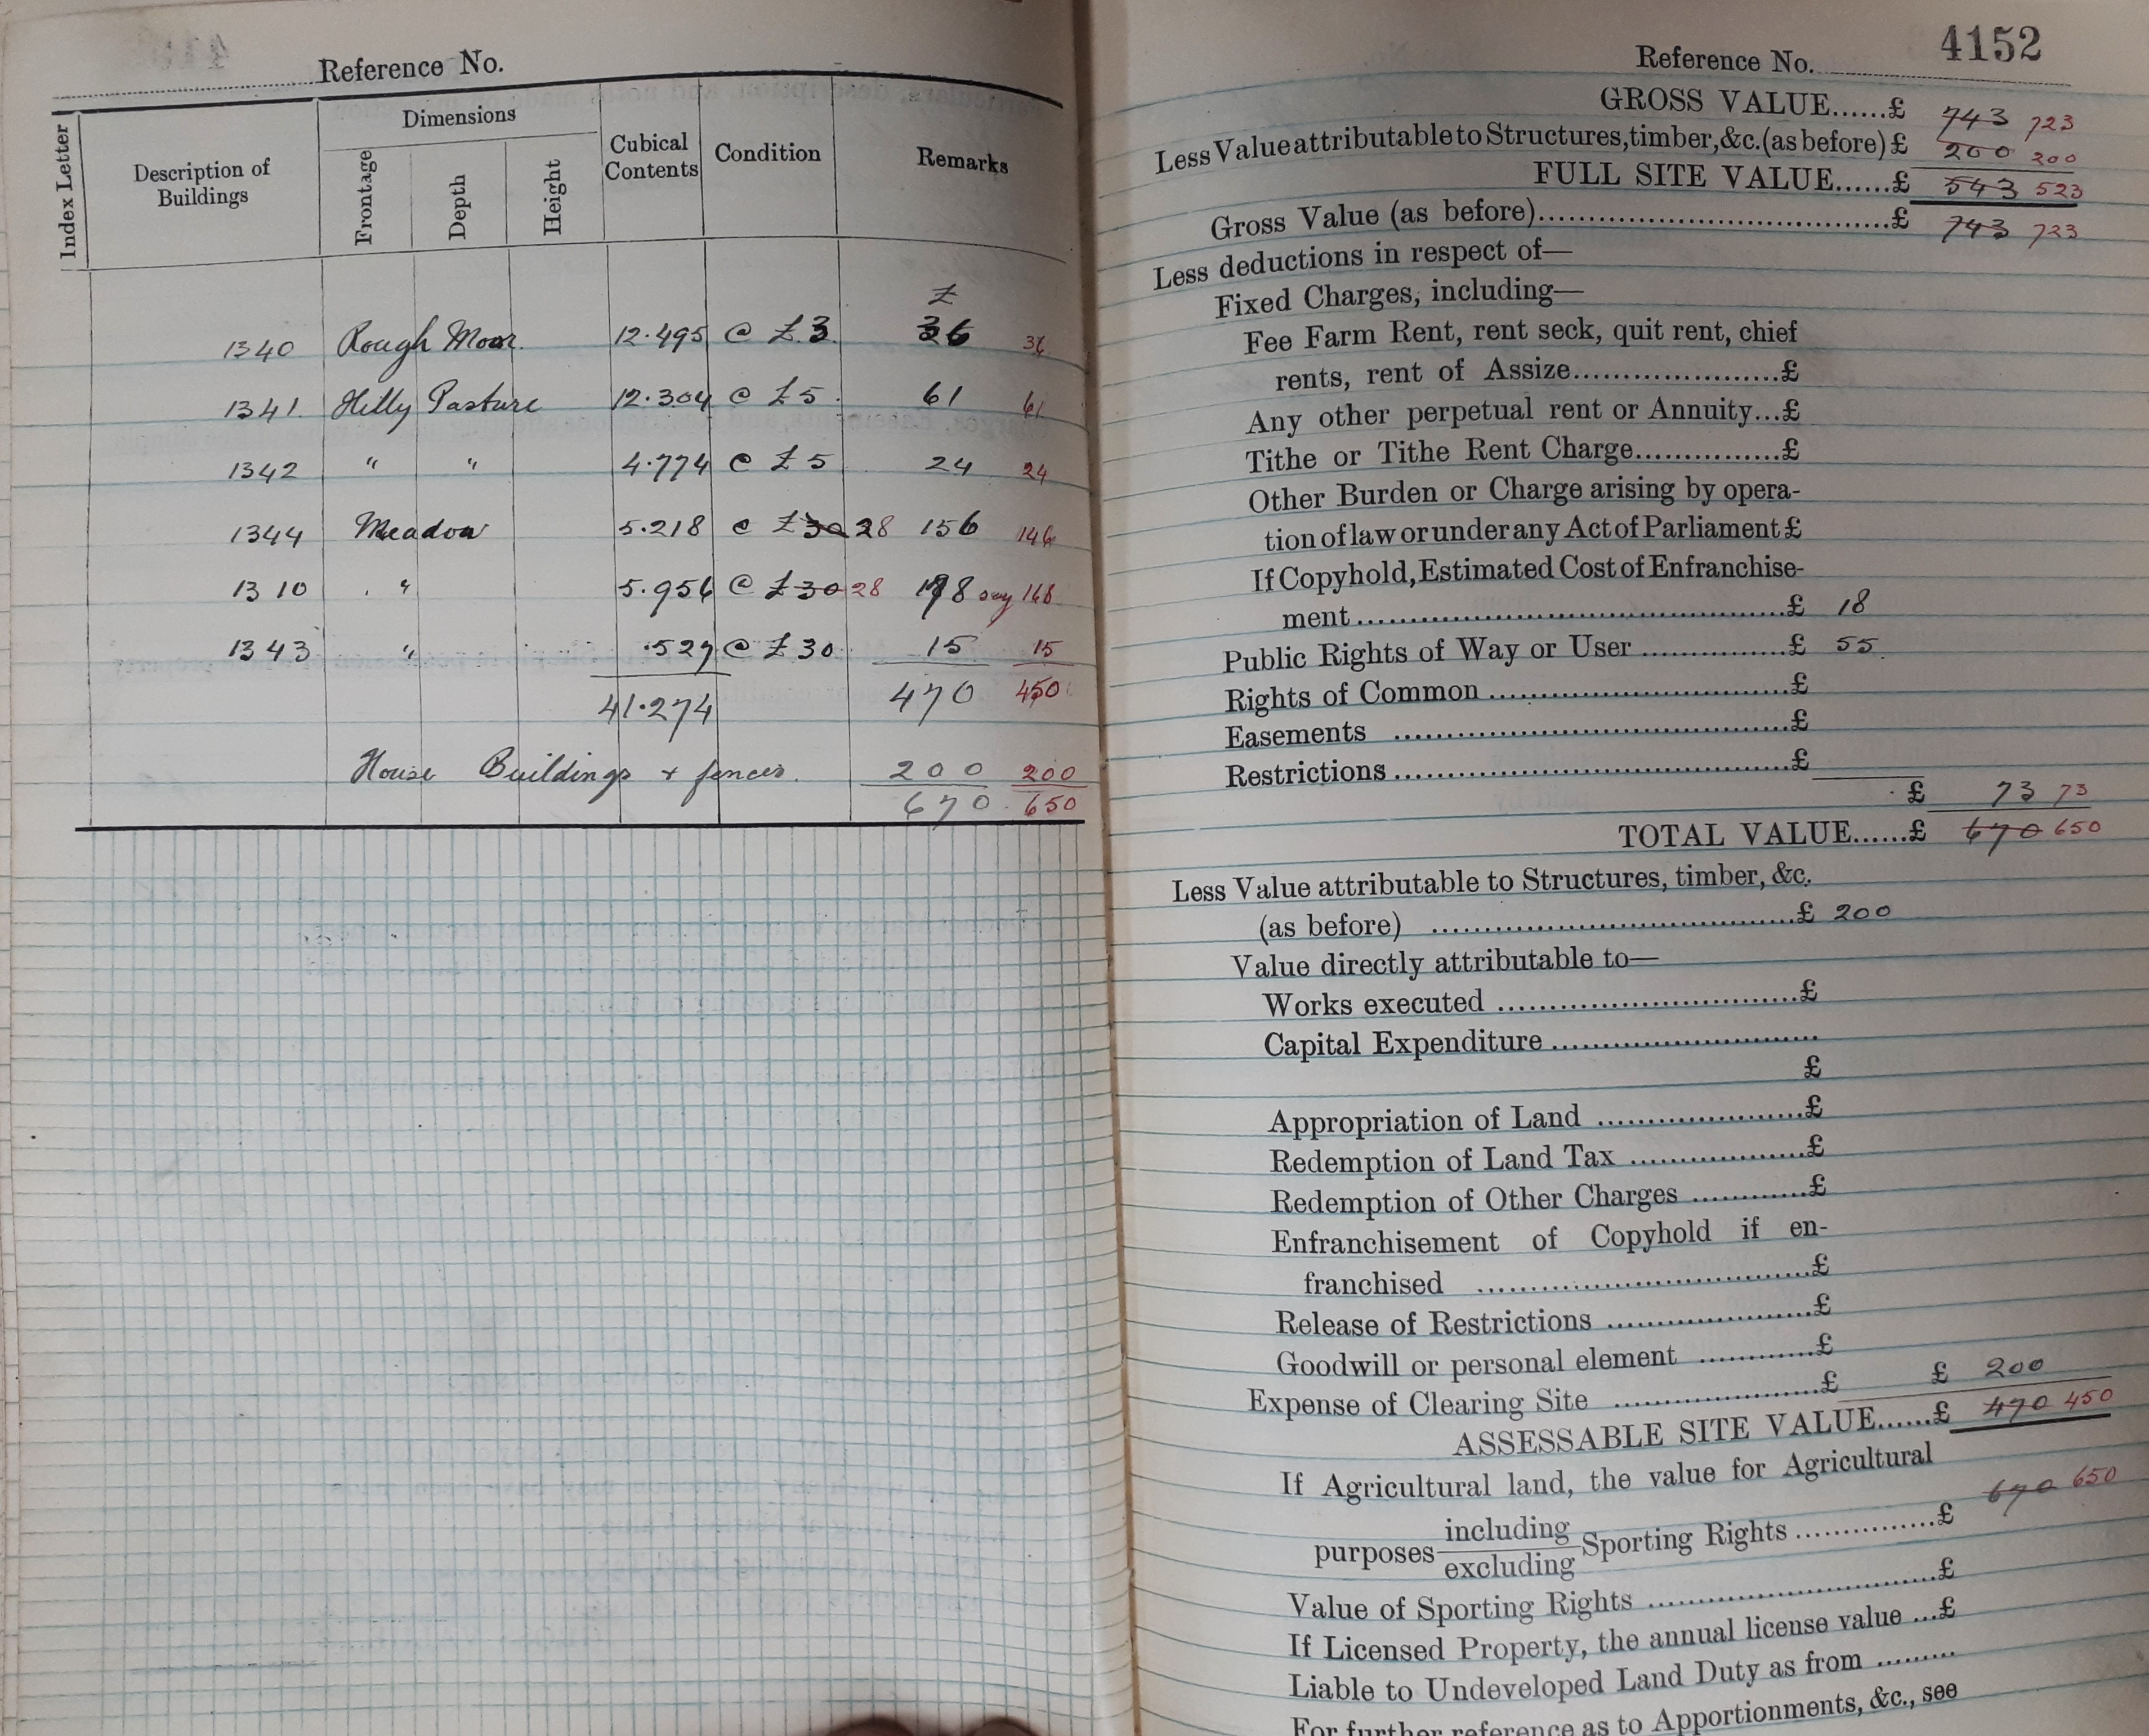 Reference No.
Index Letter
Description of Buildings
Dimensions
Frontage
Depth
Height
Cubical Contents
Condition
Remarks
£
1340 Rough Moor. 12.495 @ £3. 36 36
1341. Hilly Pasture 12.304 @ £5. 61 61
1342 " " 4.774 @ £5 24 24
1344 Meadow 5.218 @ £30 28 156 146
1310 " 5.956 @ £30 28 178 say 168
1343 " .527 @ £30 15 15
41.274 470 450
House Buildings + fences. 200 200
670. 650
Reference No. 4152
GROSS VALUE......£ 743 723
Less Value attributable to Structures, timber, &c. (as before) £ 200 200
FULL SITE VALUE......£ 543 523
Gross Value (as before)......£ 743 723
Less deductions in respect of—
Fixed Charges, including—
Fee Farm Rent, rent seck, quit rent, chief
rents, rent of Assize......£
Any other perpetual rent or Annuity...£
Tithe or Tithe Rent Charge......£
Other Burden or Charge arising by opera-
tion of law or under any Act of Parliament £
If Copyhold, Estimated Cost of Enfranchise-
ment......£ 18
Public Rights of Way or User......£ 55.
Rights of Common......£
Easements......£
Restrictions......£
£ 73 73
TOTAL VALUE......£ 670 650
Less Value attributable to Structures, timber, &c.
(as before)......£ 200
Value directly attributable to—
Works executed......£
Capital Expenditure......
£
Appropriation of Land......£
Redemption of Land Tax......£
Redemption of Other Charges......£
Enfranchisement of Copyhold if en-
franchised......£
Release of Restrictions......£
Goodwill or personal element......£
Expense of Clearing Site......£ £ 200
ASSESSABLE SITE VALUE......£ 470 450
If Agricultural land, the value for Agricultural
purposes including/excluding Sporting Rights......£ 670 650
Value of Sporting Rights......£
If Licensed Property, the annual license value...£
Liable to Undeveloped Land Duty as from.........
For further reference as to Apportionments, &c., see